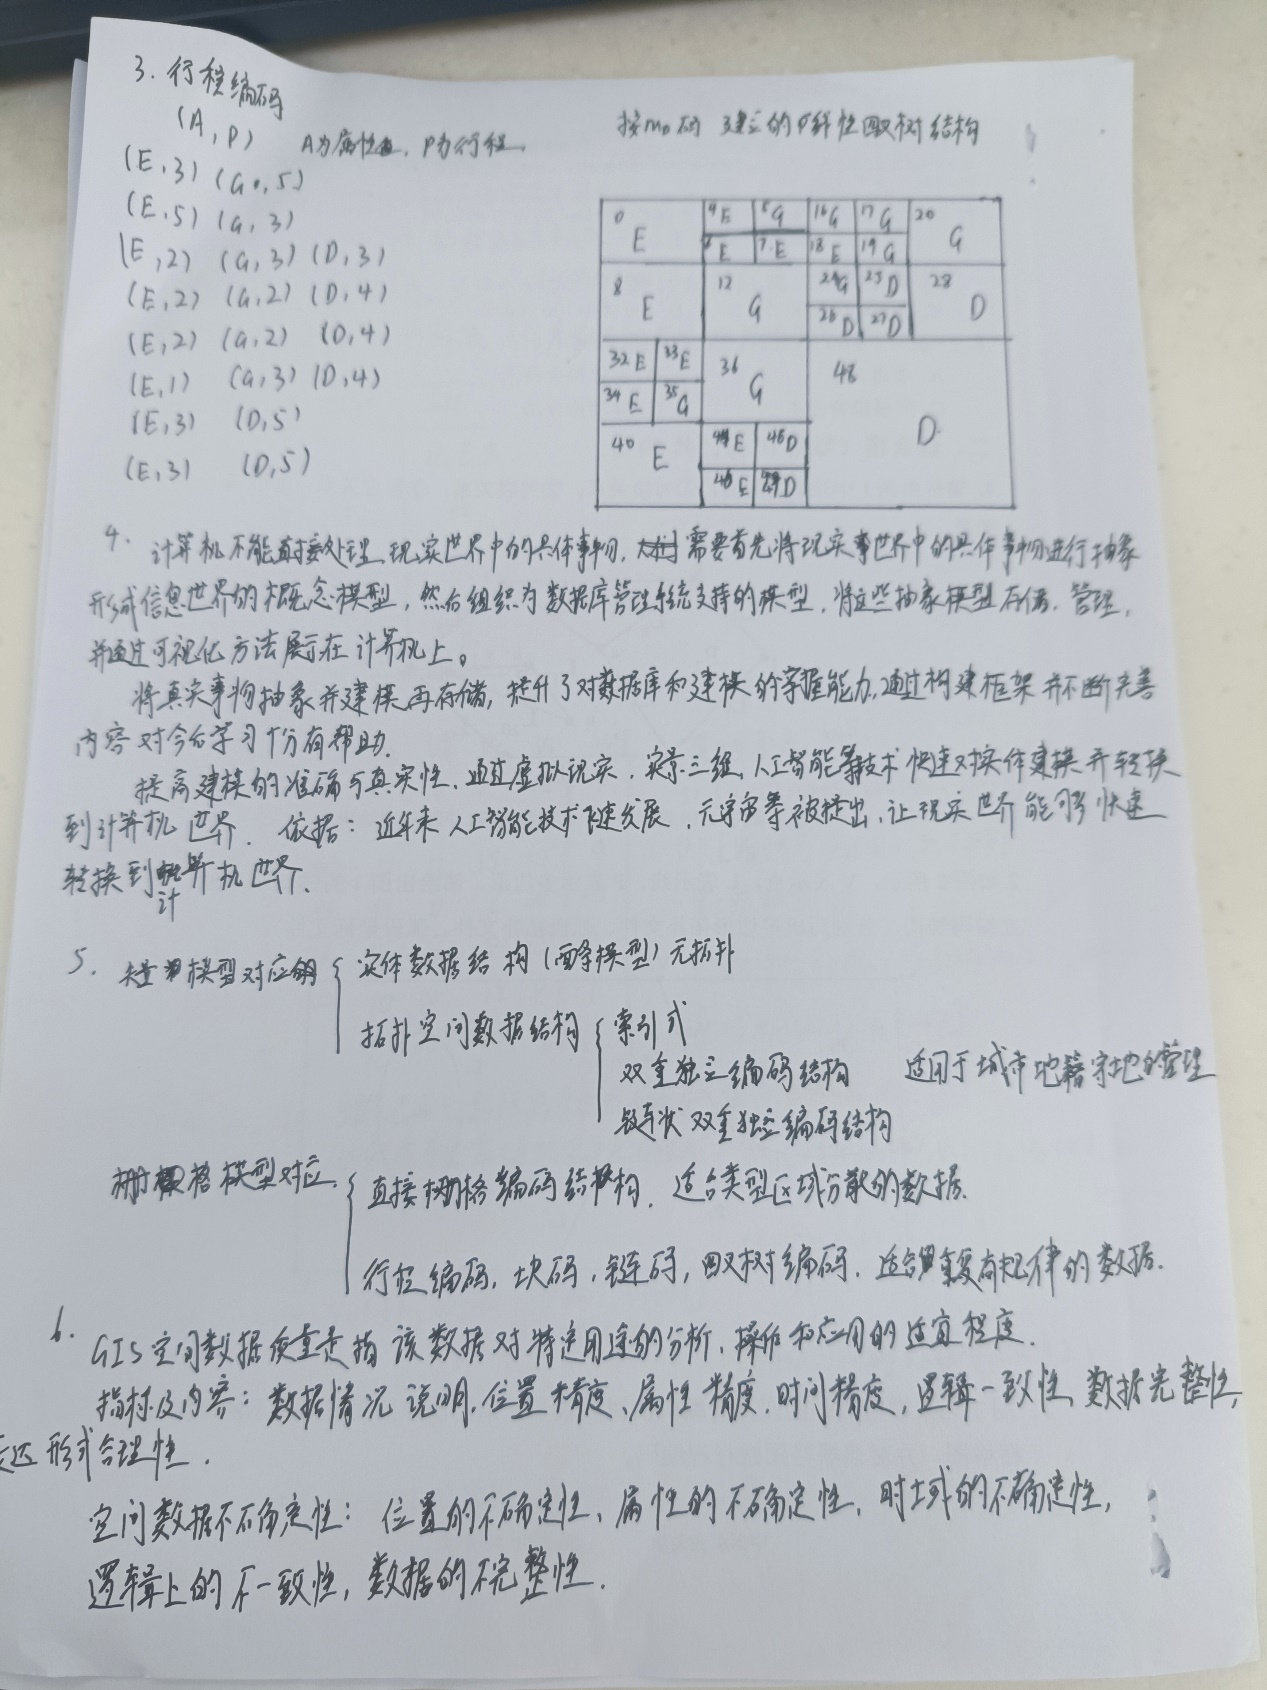 3. 行程编码
(A, P) A为属性, P为行程.
按MD码 建立的线性四叉树结构
(E,3) (G,5)
(E,5) (G,3)
(E,2) (G,3) (D,3)
(E,2) (G,2) (D,4)
(E,2) (G,2) (D,4)
(E,1) (G,3) (D,4)
(E,3) (D,5)
(E,3) (D,5)
0 E 4 E 5 G 16 G 17 G 20 G
E 7 E 18 E 19 G
8 E 12 G 24 G 25 D 28 D
26 D 27 D
32 E 33 E 36 G 48 D
34 E 35 G
40 E 44 E 45 D
46 E 47 D
4. 计算机不能直接处理现实世界中的具体事物, 需要首先将现实世界中的具体事物进行抽象
形成信息世界的概念模型, 然后组织为数据库管理系统支持的模型, 将这些抽象模型存储、管理,
并通过可视化方法展示在计算机上。
将真实事物抽象并建模再存储, 提升了对数据库和建模的掌握能力, 通过构建框架并不断完善
内容对今后学习十分有帮助.
提高建模的准确与真实性, 通过虚拟现实, 实景三维, 人工智能等技术快速对实体建模并转换
到计算机世界. 依据: 近年来人工智能技术飞速发展, 元宇宙等被提出, 让现实世界能够快速
转换到计算机世界.
5. 矢量模型对应的 实体数据结构 (面条模型) 无拓扑
拓扑空间数据结构 索引式
双重独立编码结构 适用于城市地籍宗地的管理
链状双重独立编码结构
栅格模型对应 直接栅格编码结构, 适合类型区域分散的数据.
行程编码, 块码, 链码, 四叉树编码, 适合重复有规律的数据.
6. GIS空间数据质量是指该数据对特定用途的分析, 操作和应用的适宜程度.
指标及内容: 数据情况说明, 位置精度、属性精度, 时间精度, 逻辑一致性, 数据完整性,
表达形式合理性.
空间数据不确定性: 位置的不确定性、属性的不确定性, 时域的不确定性,
逻辑上的不一致性, 数据的不完整性.